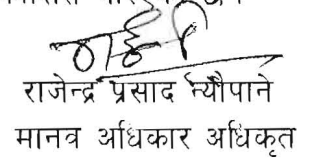 राजेन्द्र प्रसाद न्यौपाने
मानव अधिकार अधिकृत